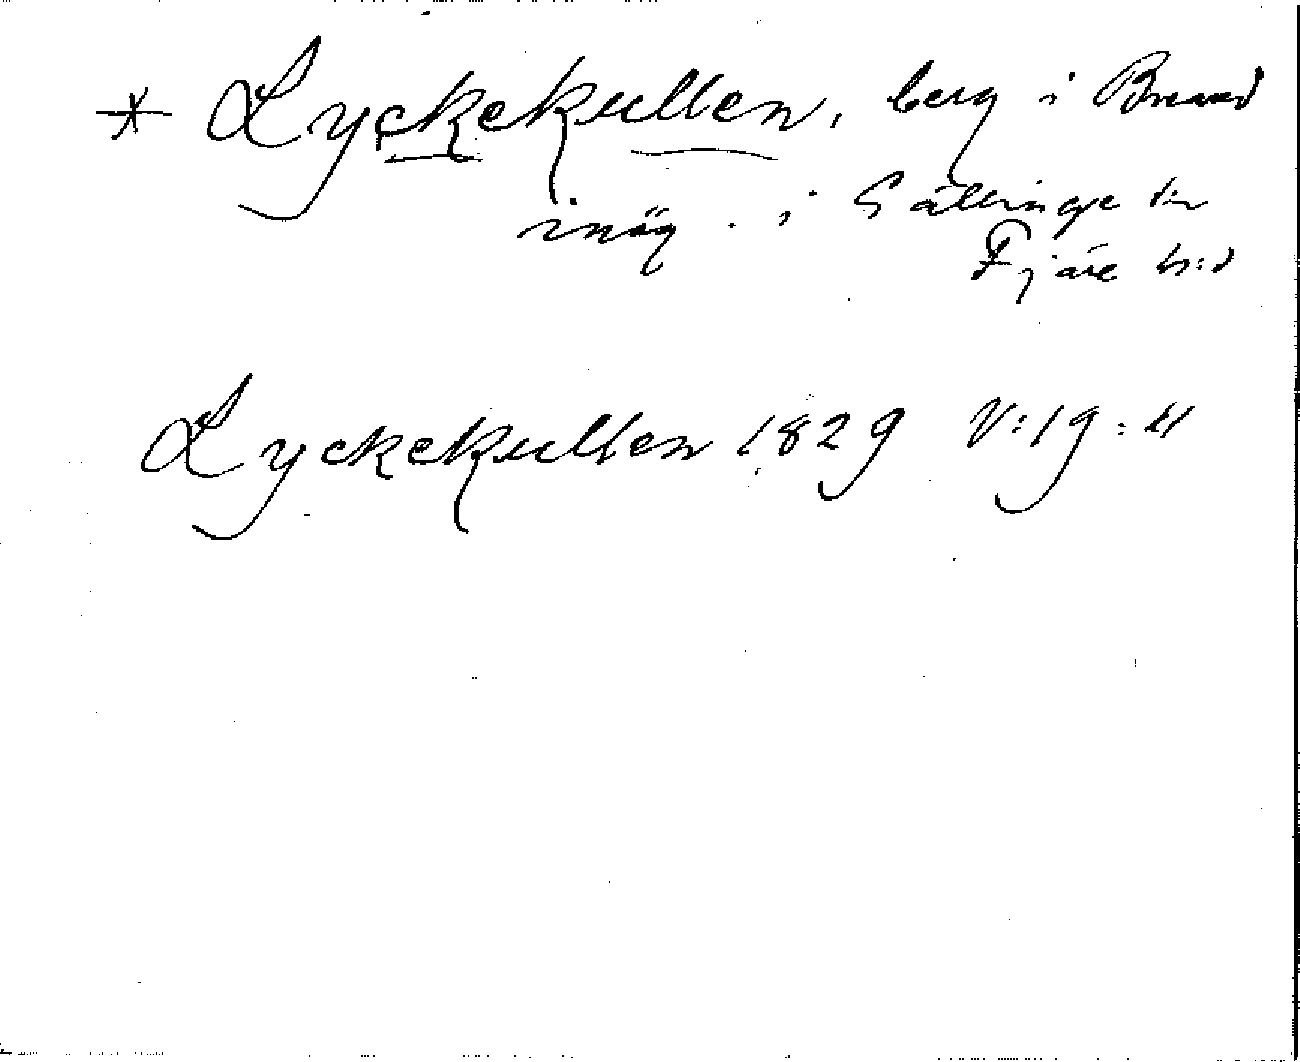 * Lyckekullen, berg i Breared
inäg. i Gällinge sn
Fjäre h:d
Lyckekullen 1829 V:19:41